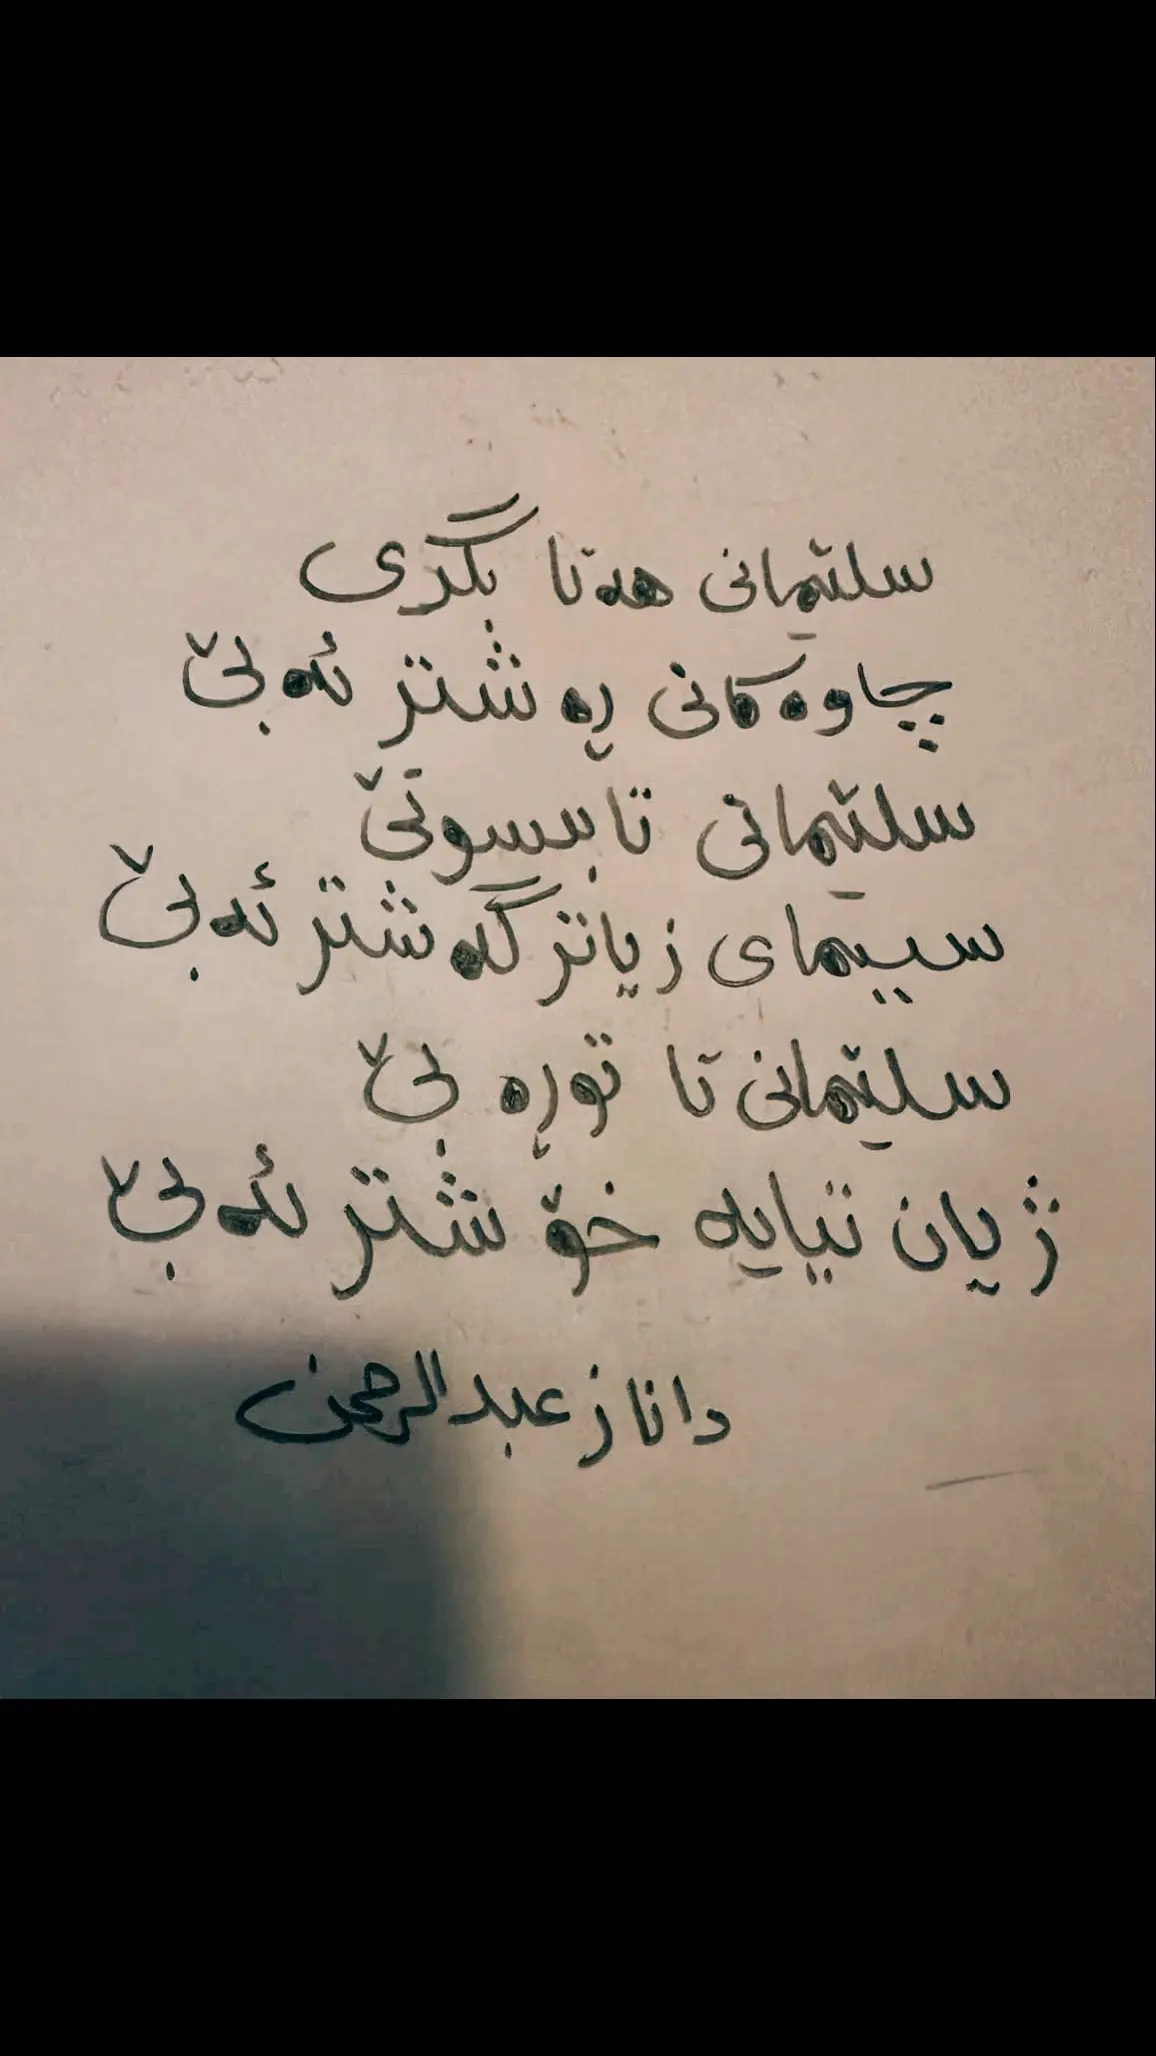 سلێمانی هەتا بگری
چاوەکانی ڕەشتر ئەبێ
سلێمانی تا بسوتێ
سیمای زیاتر گەشتر ئەبێ
سلێمانی تا توڕە بێ
ژیان تیایە خۆشتر ئەبێ
داناز عبدالرحمن